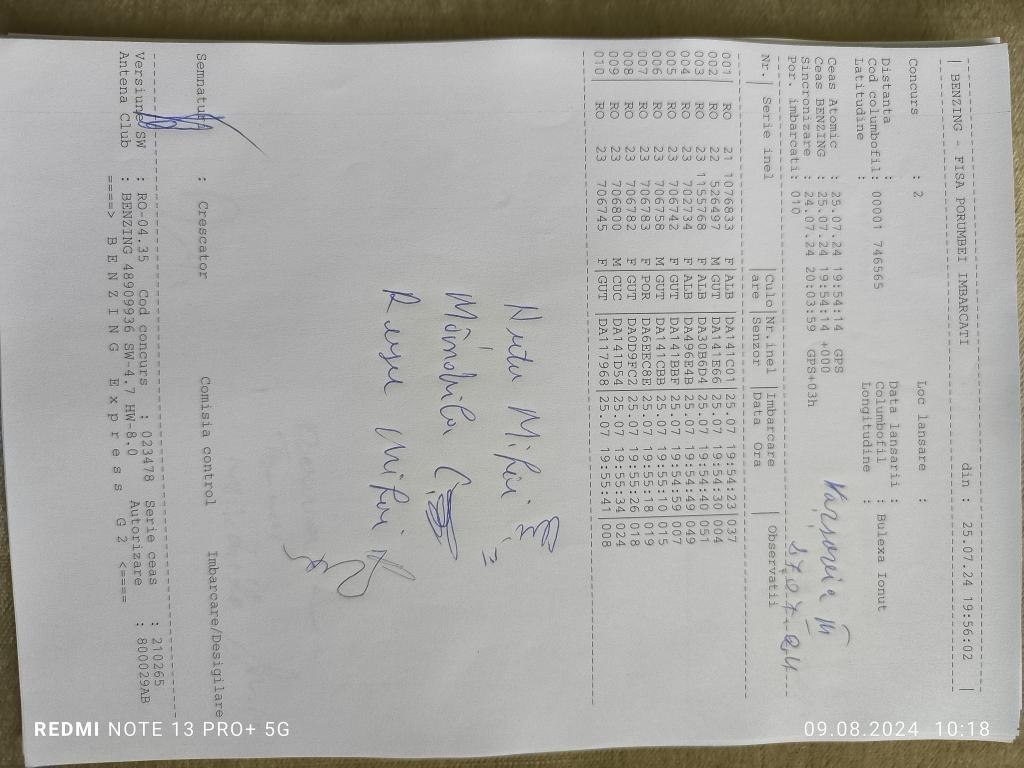 | BENZING - FISA PORUMBEI IMBARCATI din : 25.07.24 19:56:02 |
Concurs : 2 Loc lansare :
Distanta : Data lansarii :
Cod columbofil: 00001 746565 Columbofil : Bulexa Ionut
Latitudine : Longitudine :
Ceas Atomic : 25.07.24 19:54:14 GPS
Ceas BENZING : 25.07.24 19:54:14 +000
Sincronizare : 24.07.24 20:03:59 GPS+03h
Por. imbarcati: 010
Nr.| Serie inel |Culo|Nr.inel |Imbarcare |Observatii
|are |Senzor |Data Ora |
001| RO 21 1076833 F|ALB |DA141C01|25.07 19:54:23|037
002| RO 22 526497 M|GUT |DA141E66|25.07 19:54:30|004
003| RO 23 1155768 F|ALB |DA30B6D4|25.07 19:54:40|051
004| RO 23 702734 F|ALB |DA496E4B|25.07 19:54:49|049
005| RO 23 706742 F|GUT |DA141BBF|25.07 19:54:59|007
006| RO 23 706758 M|GUT |DA141CBB|25.07 19:55:10|015
007| RO 23 706783 F|POR |DA6EEC8E|25.07 19:55:18|019
008| RO 23 706782 F|GUT |DA0D9FC2|25.07 19:55:26|018
009| RO 23 706800 M|CUC |DA141D54|25.07 19:55:34|024
010| RO 23 706745 F|GUT |DA117968|25.07 19:55:41|008
Semnatura : Crescator Comisia control Imbarcare/Desigilare
Versiune SW : RO-04.35 Cod concurs : 023478 Serie ceas : 210265
Antena Club : BENZING 48909936 SW-4.7 HW-8.0 Autorizare : 800029AB
====> B E N Z I N G E x p r e s s G 2 <====
REDMI NOTE 13 PRO+ 5G
09.08.2024 10:18